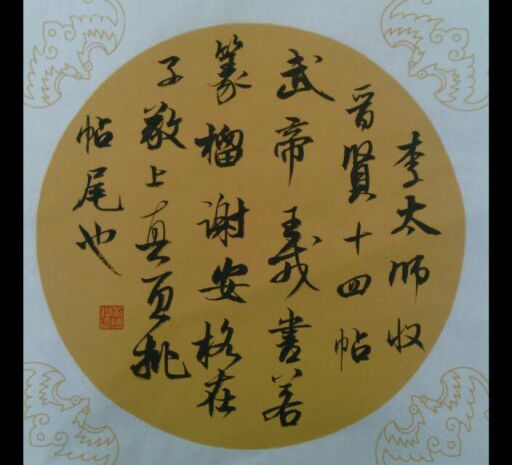 李太师收
晋賢十四帖
武帝王戎書若
篆榴谢安格在
子敬上真宜批
帖尾也